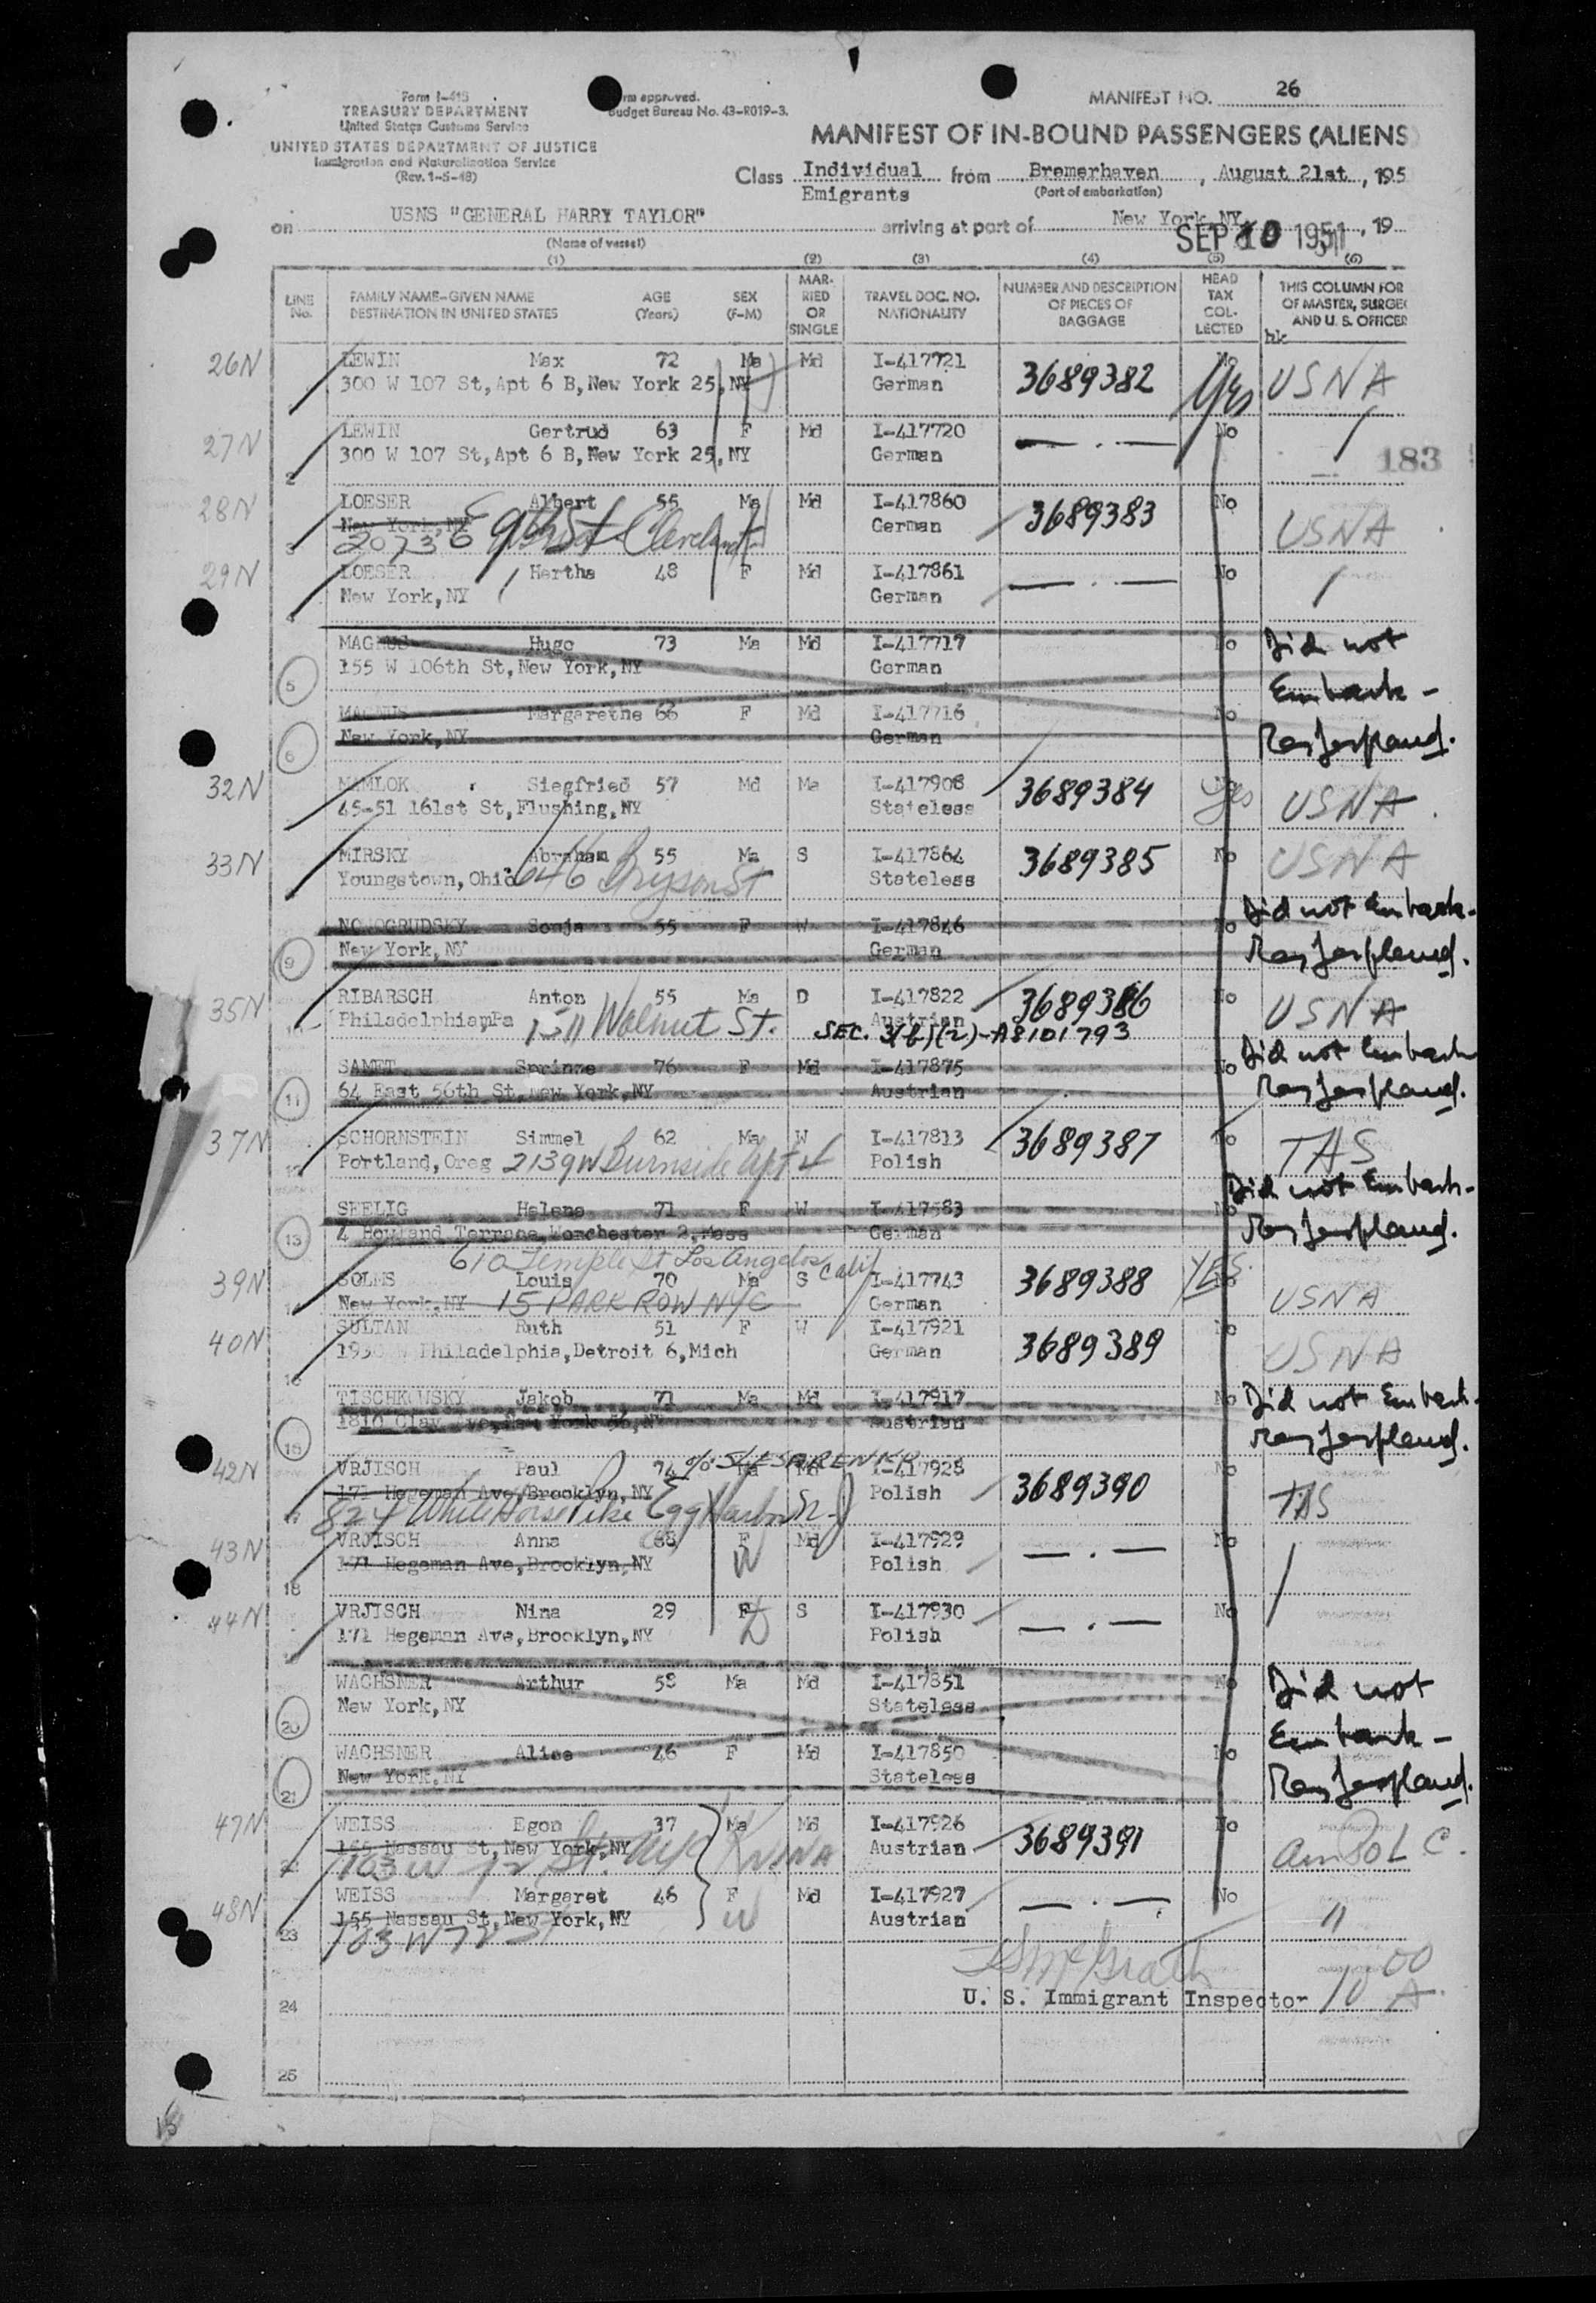 MANIFEST NO. 26
Form I-415
TREASURY DEPARTMENT
United States Customs Service
UNITED STATES DEPARTMENT OF JUSTICE
Immigration and Naturalization Service
(Rev. 1-5-48)
rm approved.
Budget Bureau No. 43-R019-3.
MANIFEST OF IN-BOUND PASSENGERS (ALIENS
Class Individual Emigrants from Bremerhaven, August 21st, 195
(Port of embarkation)
on USNS "GENERAL HARRY TAYLOR" arriving at port of New York NY, 19
(Name of vessel)
SEP 10 1951
(1) (2) (3) (4) (5) (6)
LINE No. FAMILY NAME-GIVEN NAME DESTINATION IN UNITED STATES AGE (Years) SEX (F-M) MARRIED OR SINGLE TRAVEL DOC. NO. NATIONALITY NUMBER AND DESCRIPTION OF PIECES OF BAGGAGE HEAD TAX COLLECTED THIS COLUMN FOR OF MASTER, SURGE AND U. S. OFFICER
hk
26N LEWIN Max 72 Ma Md I-417721 3689382 No Yes USNA
300 W 107 St, Apt 6 B, New York 25, NY German
27N LEWIN Gertrud 63 F Md I-417720 — . — No
2 300 W 107 St, Apt 6 B, New York 25, NY German
183
28N LOESER Albert 55 Ma Md I-417860 3689383 No USNA
3 New York, NY German
2073 E 9th St Cleveland
29N LOESER Hertha 48 F Md I-417861 — . — No
4 New York, NY German
MAGNUS Hugo 73 Ma Md I-417717 No Did not
5 155 W 106th St, New York, NY German Embark -
MAGNUS Margarethe 66 F Md I-417716 No
6 New York, NY German
32N MAMLOK Siegfried 57 Md Ma I-417908 3689384 Yes USNA
45-51 161st St, Flushing, NY Stateless
33N MIRSKY Abraham 55 Ma S I-417864 3689385 No USNA
Youngstown, Ohio 646 Bryson St Stateless
NOWOGRUDSKY Sonja 55 F W I-417846 No Did not Embark-
9 New York, NY German
35N RIBARSCH Anton 55 Ma D I-417822 3689386 No USNA
Philadelphia, Pa 1511 Walnut St. Austrian
SEC. 3(b)(2)-A8101793
SAMET Sprinze 76 F Md I-417875 No Did not Embark
11 64 East 56th St, New York, NY Austrian
37N SCHORNSTEIN Simmel 62 Ma W I-417813 3689387 No TAS
12 Portland, Oreg 2139 W Burnside Apt 4 Polish
SEELIG Helene 71 F W I-417583 No Did not Embark-
13 4 Howland Terrace, Worchester 2, Mass German
610 Temple St Los Angelos Calif
39N SOLMS Louis 70 Ma S I-417743 3689388 No YES USNA
New York, NY 15 PARK ROW NYC German
40N SULTAN Ruth 51 F W I-417921 3689389 No USNA
Philadelphia, Detroit 6, Mich German
TISCHKOWSKY Jakob 71 Ma Md I-417917 No Did not Embark.
16 1810 Clay Ave, New York 56, NY Austrian
42N VRJISCH Paul 74 Ma Md I-417928 3689390 No TAS
c/o SLESARENKER
171 Hegeman Ave, Brooklyn, NY Polish
824 White Horse Pike Egg Harbor N.J
43N VRJISCH Anna 68 F Md I-417929 — . — No
18 171 Hegeman Ave, Brooklyn, NY W Polish
44N VRJISCH Nina 29 F S I-417930 — . — No
171 Hegeman Ave, Brooklyn, NY D Polish
WACHSNER Arthur 58 Ma Md I-417851 No Did not
20 New York, NY Stateless Embark -
WACHSNER Alice 46 F Md I-417850 No
21 New York, NY Stateless
47N WEISS Egon 37 Ma Md I-417926 3689391 No
22 155 Nassau St, New York, NY Austrian
103 W 72 St. NYC
48N WEISS Margaret 46 F Md I-417927 — . — No "
23 155 Nassau St, New York, NY W Austrian
103 W 72 St
24 U. S. Immigrant Inspector 10 00 A
25